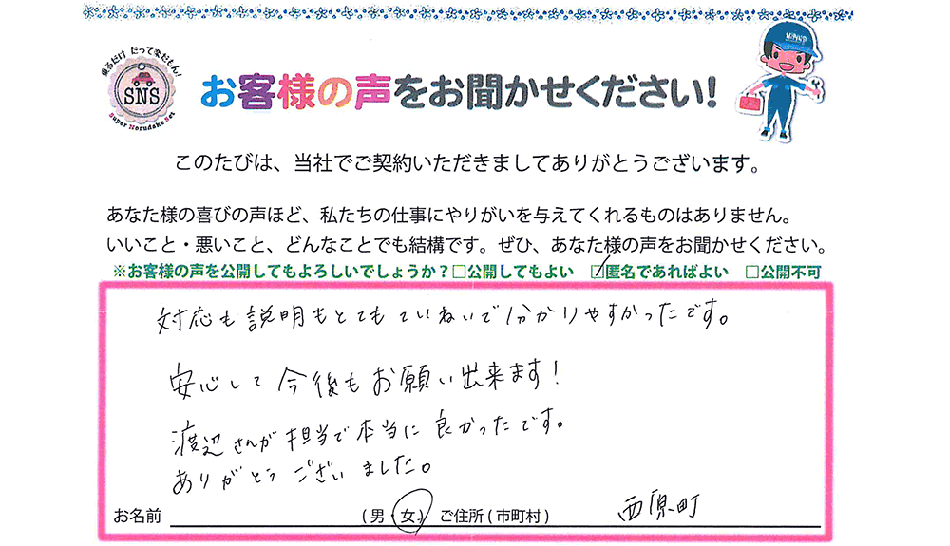 乗るだけ だって楽だもん!
SNS
Super Norudake Set
お客様の声をお聞かせください!
このたびは、当社でご契約いただきましてありがとうございます。
あなた様の喜びの声ほど、私たちの仕事にやりがいを与えてくれるものはありません。
いいこと・悪いこと、どんなことでも結構です。ぜひ、あなた様の声をお聞かせください。
※お客様の声を公開してもよろしいでしょうか?□公開してもよい ☑匿名であればよい □公開不可
対応も説明もとてもていねいで分かりやすかったです。
安心して今後もお願い出来ます!
渡辺さんが担当で本当に良かったです。
ありがとうございました。
お名前 (男・女) ご住所(市町村) 西原町